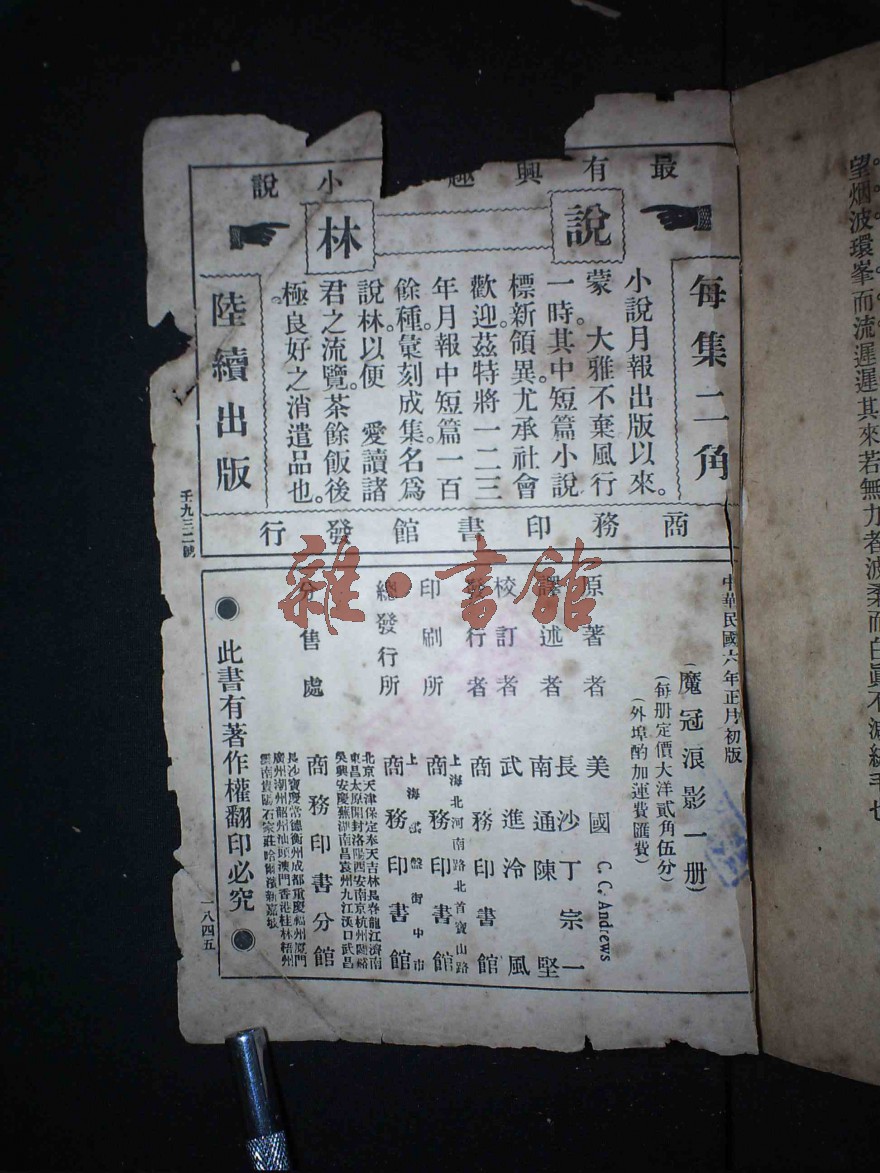 最有興趣小說
說林
每集二角
小說月報出版以來。
蒙　大雅不棄風行
一時。其中短篇小說
標新領異尤承社會
歡迎茲特將一二三
年月報中短篇一百
餘種。彙刻成集。名爲
說林以便　愛讀諸
君之流覽。茶餘飯後
極良好之消遣品也。
陸續出版
商務印書館發行
中華民國六年正月初版
（魔冠浪影一册）
（每册定價大洋貳角伍分）
（外埠酌加運費匯費）
原著者　美國 C. C. Andrews
譯述者　長沙丁宗一
南通陳堅
校訂者　武進泠風
發行者　商務印書館
上海北河南路北首寶山路
印刷所　商務印書館
上海棋盤街中市
總發行所　商務印書館
北京天津保定奉天吉林長春龍江濟南
東昌太原開封洛陽西安南京杭州蘭谿
吳興安慶蕪湖南昌袁州九江漢口武昌
分售處　商務印書分館
長沙寶慶常德衡州成都重慶福州廈門
廣州潮州韶州汕頭澳門香港桂林梧州
雲南貴陽石家莊哈爾濱新嘉坡
●此書有著作權翻印必究●
一八四五
壬九三二號
雜·書館
望烟波環峯而流遲遲其來若無力者波柔而白眞不減